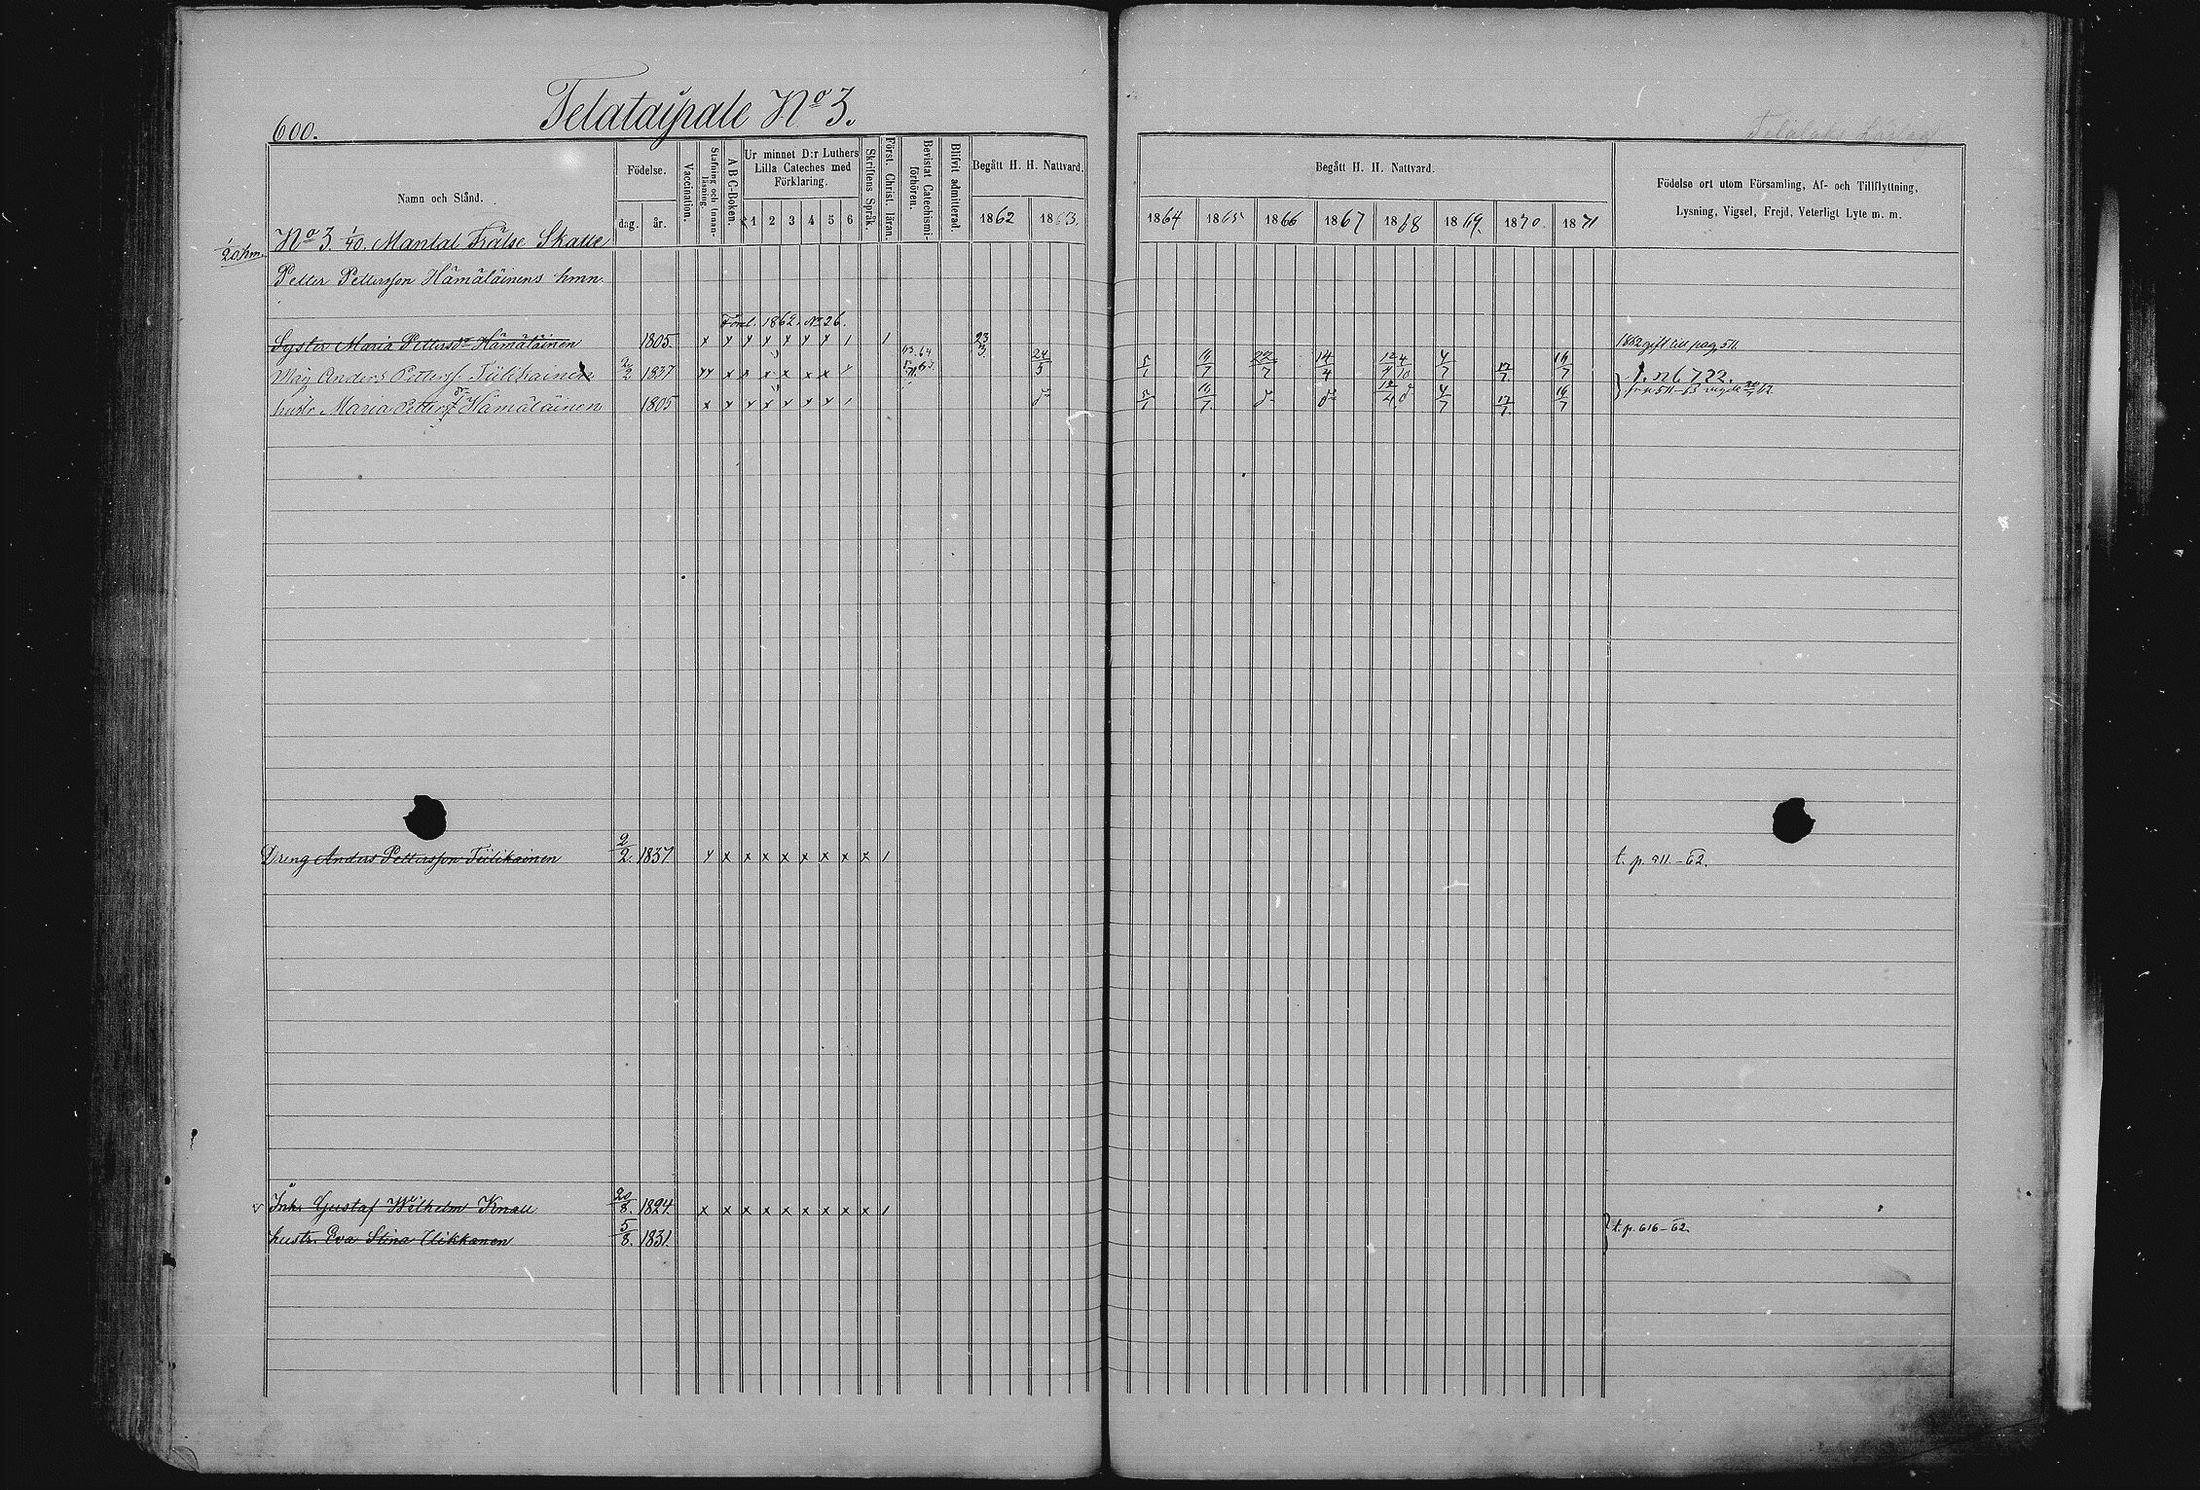 600.
Telataipale No 3.
Namn och Stånd.
Födelse.
dag. år.
Vaccination.
Stafning och Innanläsning.
A B C-Boken.
Ur minnet D:r Luthers Lilla Cateches med Förklaring.
1 2 3 4 5 6
Skriftens Språk.
Först. Christ. läran.
Bevistat Catechismiförhören.
Blifvit admitterad.
Begått H. H. Nattvard.
1862 1863.
Begått H. H. Nattvard.
1864 1865 1866 1867 1868 1869. 1870. 1871
Födelse ort utom Församling, Af- och Tillflyttning,
Lysning, Vigsel, Frejd, Veterligt Lyte m. m.
No 3. 1/40. Mantal Frälse Skatte
1/20 hm.
Petter Pettersson Hämäläinens hmn.
1862. No 26.
Syster Maria Pettersdr Hämäläinen 1805. x x x x x x x 1 1 23/3. 1862 gift till pag. 511.
Måg Anders Petterss. Tiilikainen 2/2 1837 24/5 5/1 16/7 22/7 14/4 12/4 4/10 4/7 17/7 16/7
hustr. Maria Petters dr Hämäläinen 1805 5/1 16/7 4/7 17/7 16/7
Dreng Anders Pettersson Tiilikainen 2/2. 1837 x x x x x x x x x 1 t. p. 511. -62.
Inh. Gustaf Wilhelm Knau 20/8. 1824. x x x x x x x x x 1
hustr. Eva Stina Ulikkanen 5/8. 1831. t. p. 616-62.